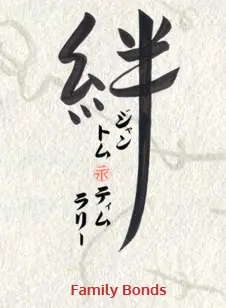 絆
ジャン
トム
ティム
ラリー
Family Bonds